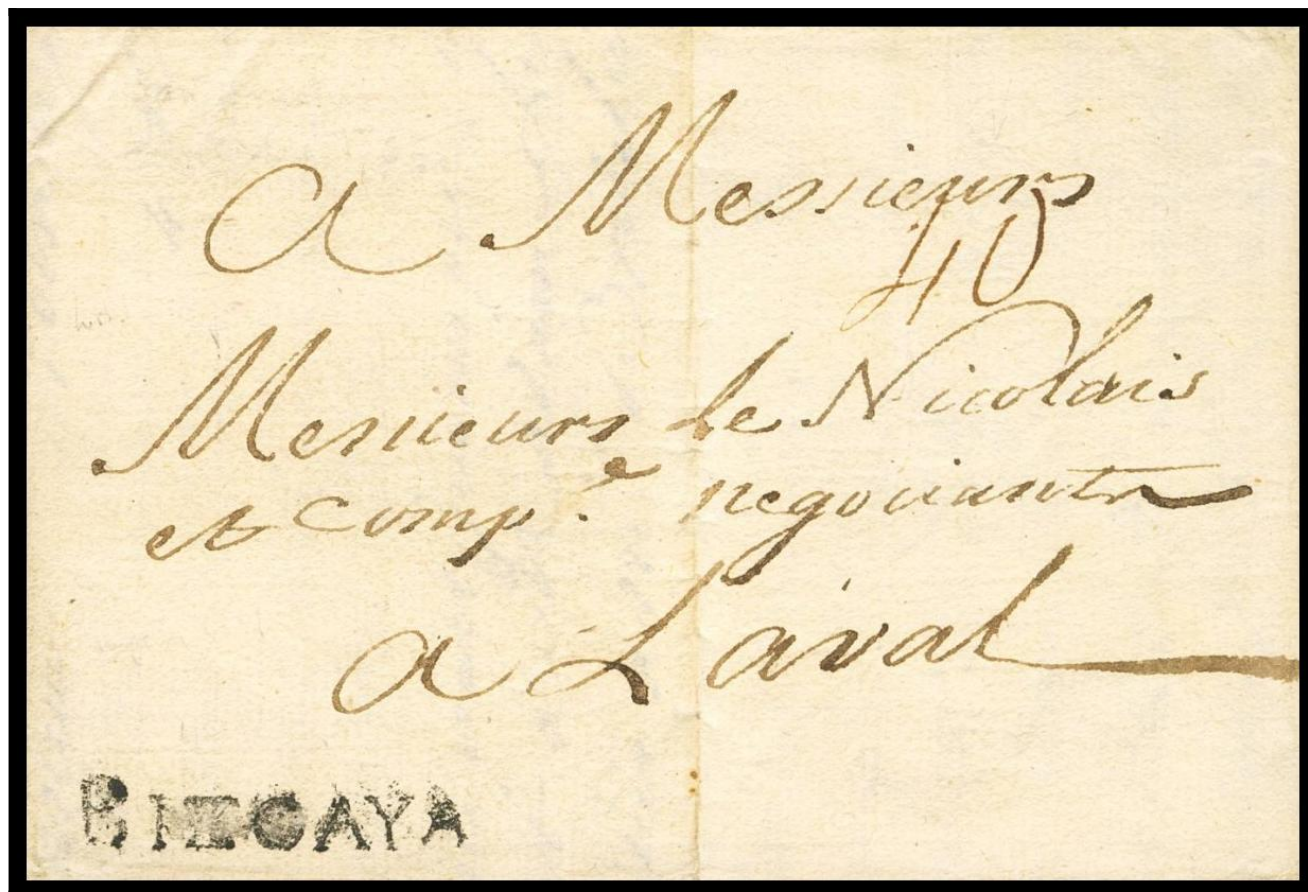 A Messieurs
40
Messieurs Le Nicolais
et Comp.e negociants
a Laval
BISCAYA